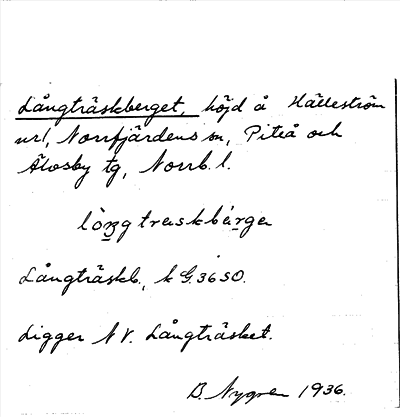 Långträskberget, höjd å Hälleström
nr 1, Norrfjärdens sn, Piteå och
Älvsby tg, Norrb. l.
Långträskb., k G. 36 SO.
Ligger N V. Långträsket.
B. Nygren 1936.